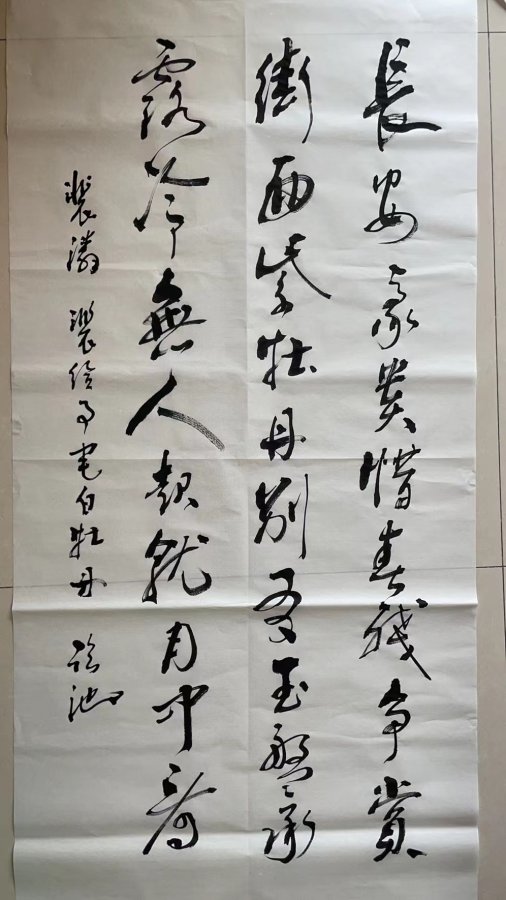 長安豪貴惜春殘争賞
街西紫牡丹别有玉盤承
露冷無人起就月中看
裴潾 裴給事宅白牡丹 临池